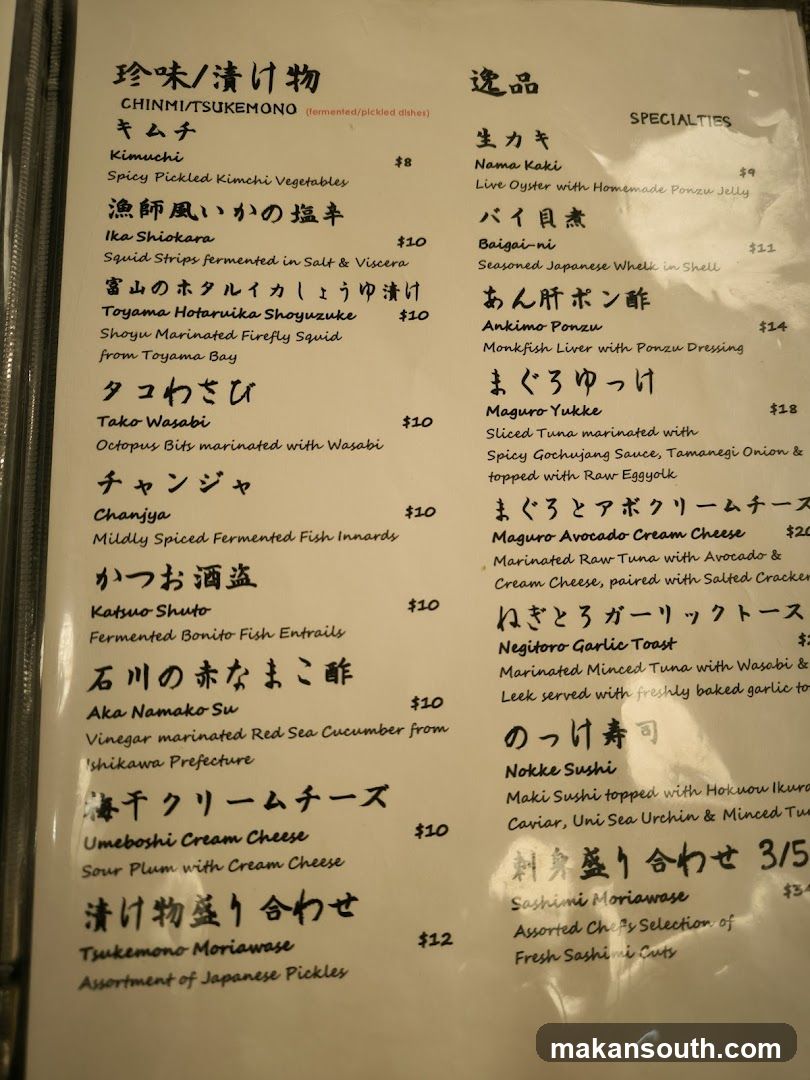 珍味/漬け物
CHINMI/TSUKEMONO (fermented/pickled dishes)
キムチ
Kimuchi $8
Spicy Pickled Kimchi Vegetables
漁師風いかの塩辛
Ika Shiokara $10
Squid Strips fermented in Salt & Viscera
富山のホタルイカしょうゆ漬け
Toyama Hotaruika Shoyuzuke $10
Shoyu Marinated Firefly Squid
from Toyama Bay
タコわさび
Tako Wasabi $10
Octopus Bits marinated with Wasabi
チャンジャ
Chanjya $10
Mildly Spiced Fermented Fish Innards
かつお酒盗
Katsuo Shuto $10
Fermented Bonito Fish Entrails
石川の赤なまこ酢
Aka Namako Su $10
Vinegar marinated Red Sea Cucumber from
Ishikawa Prefecture
梅干クリームチーズ
Umeboshi Cream Cheese $10
Sour Plum with Cream Cheese
漬け物盛り合わせ
Tsukemono Moriawase $12
Assortment of Japanese Pickles
逸品
SPECIALTIES
生カキ
Nama Kaki $9
Live Oyster with Homemade Ponzu Jelly
バイ貝煮
Baigai-ni $11
Seasoned Japanese Whelk in Shell
あん肝ポン酢
Ankimo Ponzu $14
Monkfish Liver with Ponzu Dressing
まぐろゆっけ
Maguro Yukke $18
Sliced Tuna marinated with
Spicy Gochujang Sauce, Tamanegi Onion &
topped with Raw Eggyolk
まぐろとアボクリームチーズ
Maguro Avocado Cream Cheese
Marinated Raw Tuna with Avocado &
Cream Cheese, paired with Salted Cracker
ねぎとろガーリックトース
Negitoro Garlic Toast
Marinated Minced Tuna with Wasabi &
Leek served with freshly baked garlic to
のっけ寿司
Nokke Sushi
Maki Sushi topped with Hokuou Ikura
Caviar, Uni Sea Urchin & Minced Tu
刺身盛り合わせ 3/5
Sashimi Moriawase
Assorted Chef's Selection of
Fresh Sashimi Cuts
makansouth.com